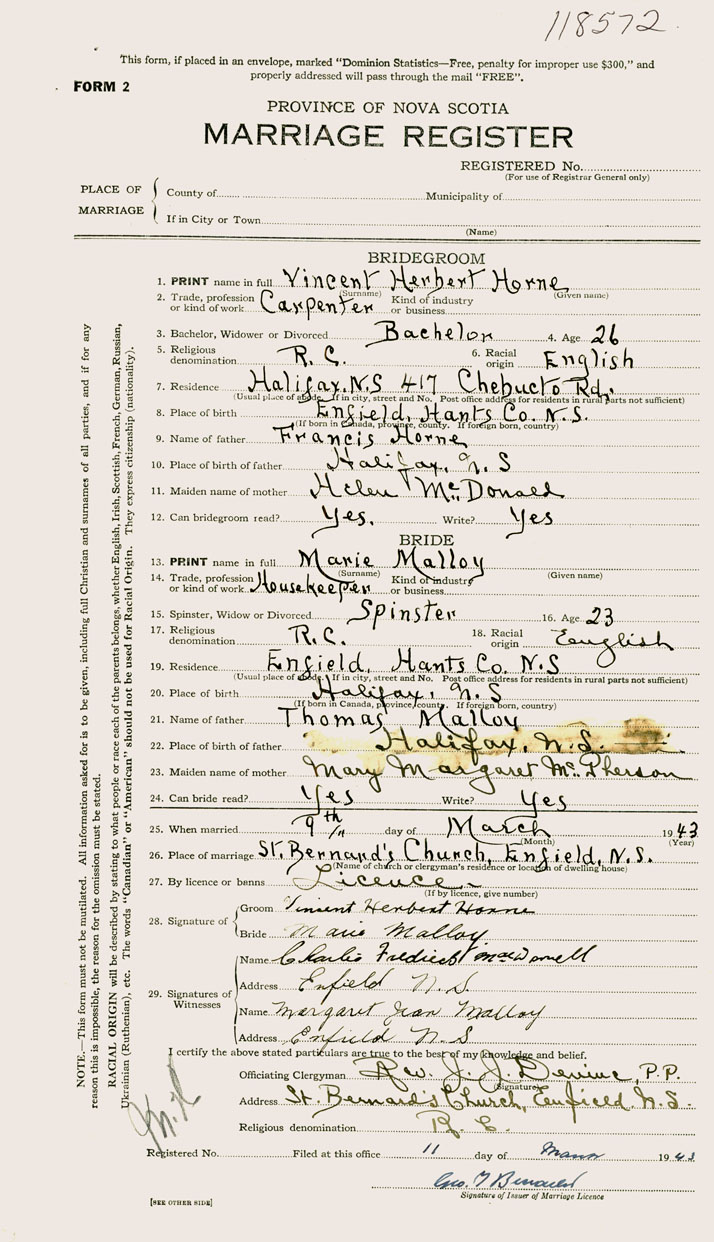 118572
This form, if placed in an envelope, marked "Dominion Statistics—Free, penalty for improper use $300," and
properly addressed will pass through the mail "FREE".
FORM 2
PROVINCE OF NOVA SCOTIA
MARRIAGE REGISTER
REGISTERED No.
(For use of Registrar General only)
PLACE OF MARRIAGE
County of Municipality of
If in City or Town
(Name)
BRIDEGROOM
1. PRINT name in full Vincent Herbert Horne
(Surname) (Given name)
2. Trade, profession or kind of work Carpenter Kind of industry or business
3. Bachelor, Widower or Divorced Bachelor 4. Age 26
5. Religious denomination R. C. 6. Racial origin English
7. Residence Halifax, N.S 417 Chebucto Rd.
(Usual place of abode. If in city, street and No. Post office address for residents in rural parts not sufficient)
8. Place of birth Enfield, Hants Co. N.S.
(If born in Canada, province, county. If foreign born, country)
9. Name of father Francis Horne
10. Place of birth of father Halifax, N.S
11. Maiden name of mother Helen McDonald
12. Can bridegroom read? Yes. Write? Yes
BRIDE
13. PRINT name in full Marie Malloy
(Surname) (Given name)
14. Trade, profession or kind of work Housekeeper Kind of industry or business
15. Spinster, Widow or Divorced Spinster 16. Age 23
17. Religious denomination R.C. 18. Racial origin English
19. Residence Enfield, Hants Co. N.S
(Usual place of abode. If in city, street and No. Post office address for residents in rural parts not sufficient)
20. Place of birth Halifax, N.S
(If born in Canada, province, county. If foreign born, country)
21. Name of father Thomas Malloy
22. Place of birth of father Halifax, N.S.
23. Maiden name of mother Mary Margaret McPherson
24. Can bride read? Yes Write? Yes
25. When married 9th day of March 1943
(Month) (Year)
26. Place of marriage St. Bernard's Church, Enfield, N.S.
(Name of church or clergyman's residence or location of dwelling house)
27. By licence or banns Licence
(If by licence, give number)
28. Signature of
Groom Vincent Herbert Horne
Bride Marie Malloy
29. Signatures of Witnesses
Name Charlie Fredick MacDonell
Address Enfield N.S
Name Margaret Jean Malloy
Address Enfield N.S
I certify the above stated particulars are true to the best of my knowledge and belief.
Officiating Clergyman Rev. J. J. Devine, P.P.
(Signature)
Address St. Bernard's Church, Enfield N.S.
Religious denomination R. C.
Registered No. Filed at this office 11 day of March 1943
Geo. T
Signature of Issuer of Marriage Licence
[SEE OTHER SIDE]
NOTE.—This form must not be mutilated. All information asked for is to be given, including full Christian and surnames of all parties, and if for any
reason this is impossible, the reason for the omission must be stated.
RACIAL ORIGIN will be described by stating to what people or race each of the parents belongs, whether English, Irish, Scottish, French, German, Russian,
Ukrainian (Ruthenian), etc. The words "Canadian" or "American" should not be used for Racial Origin. They express citizenship (nationality).